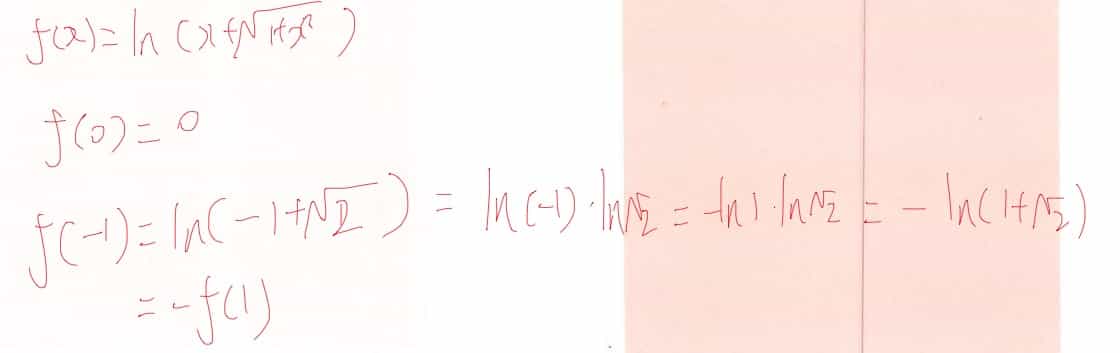 f(x)=ln(x+√(1+x²))
f(0)=0
f(-1)=ln(-1+√2)=ln(-1)·ln√2=-ln1·ln√2=-ln(1+√2)
=-f(1)